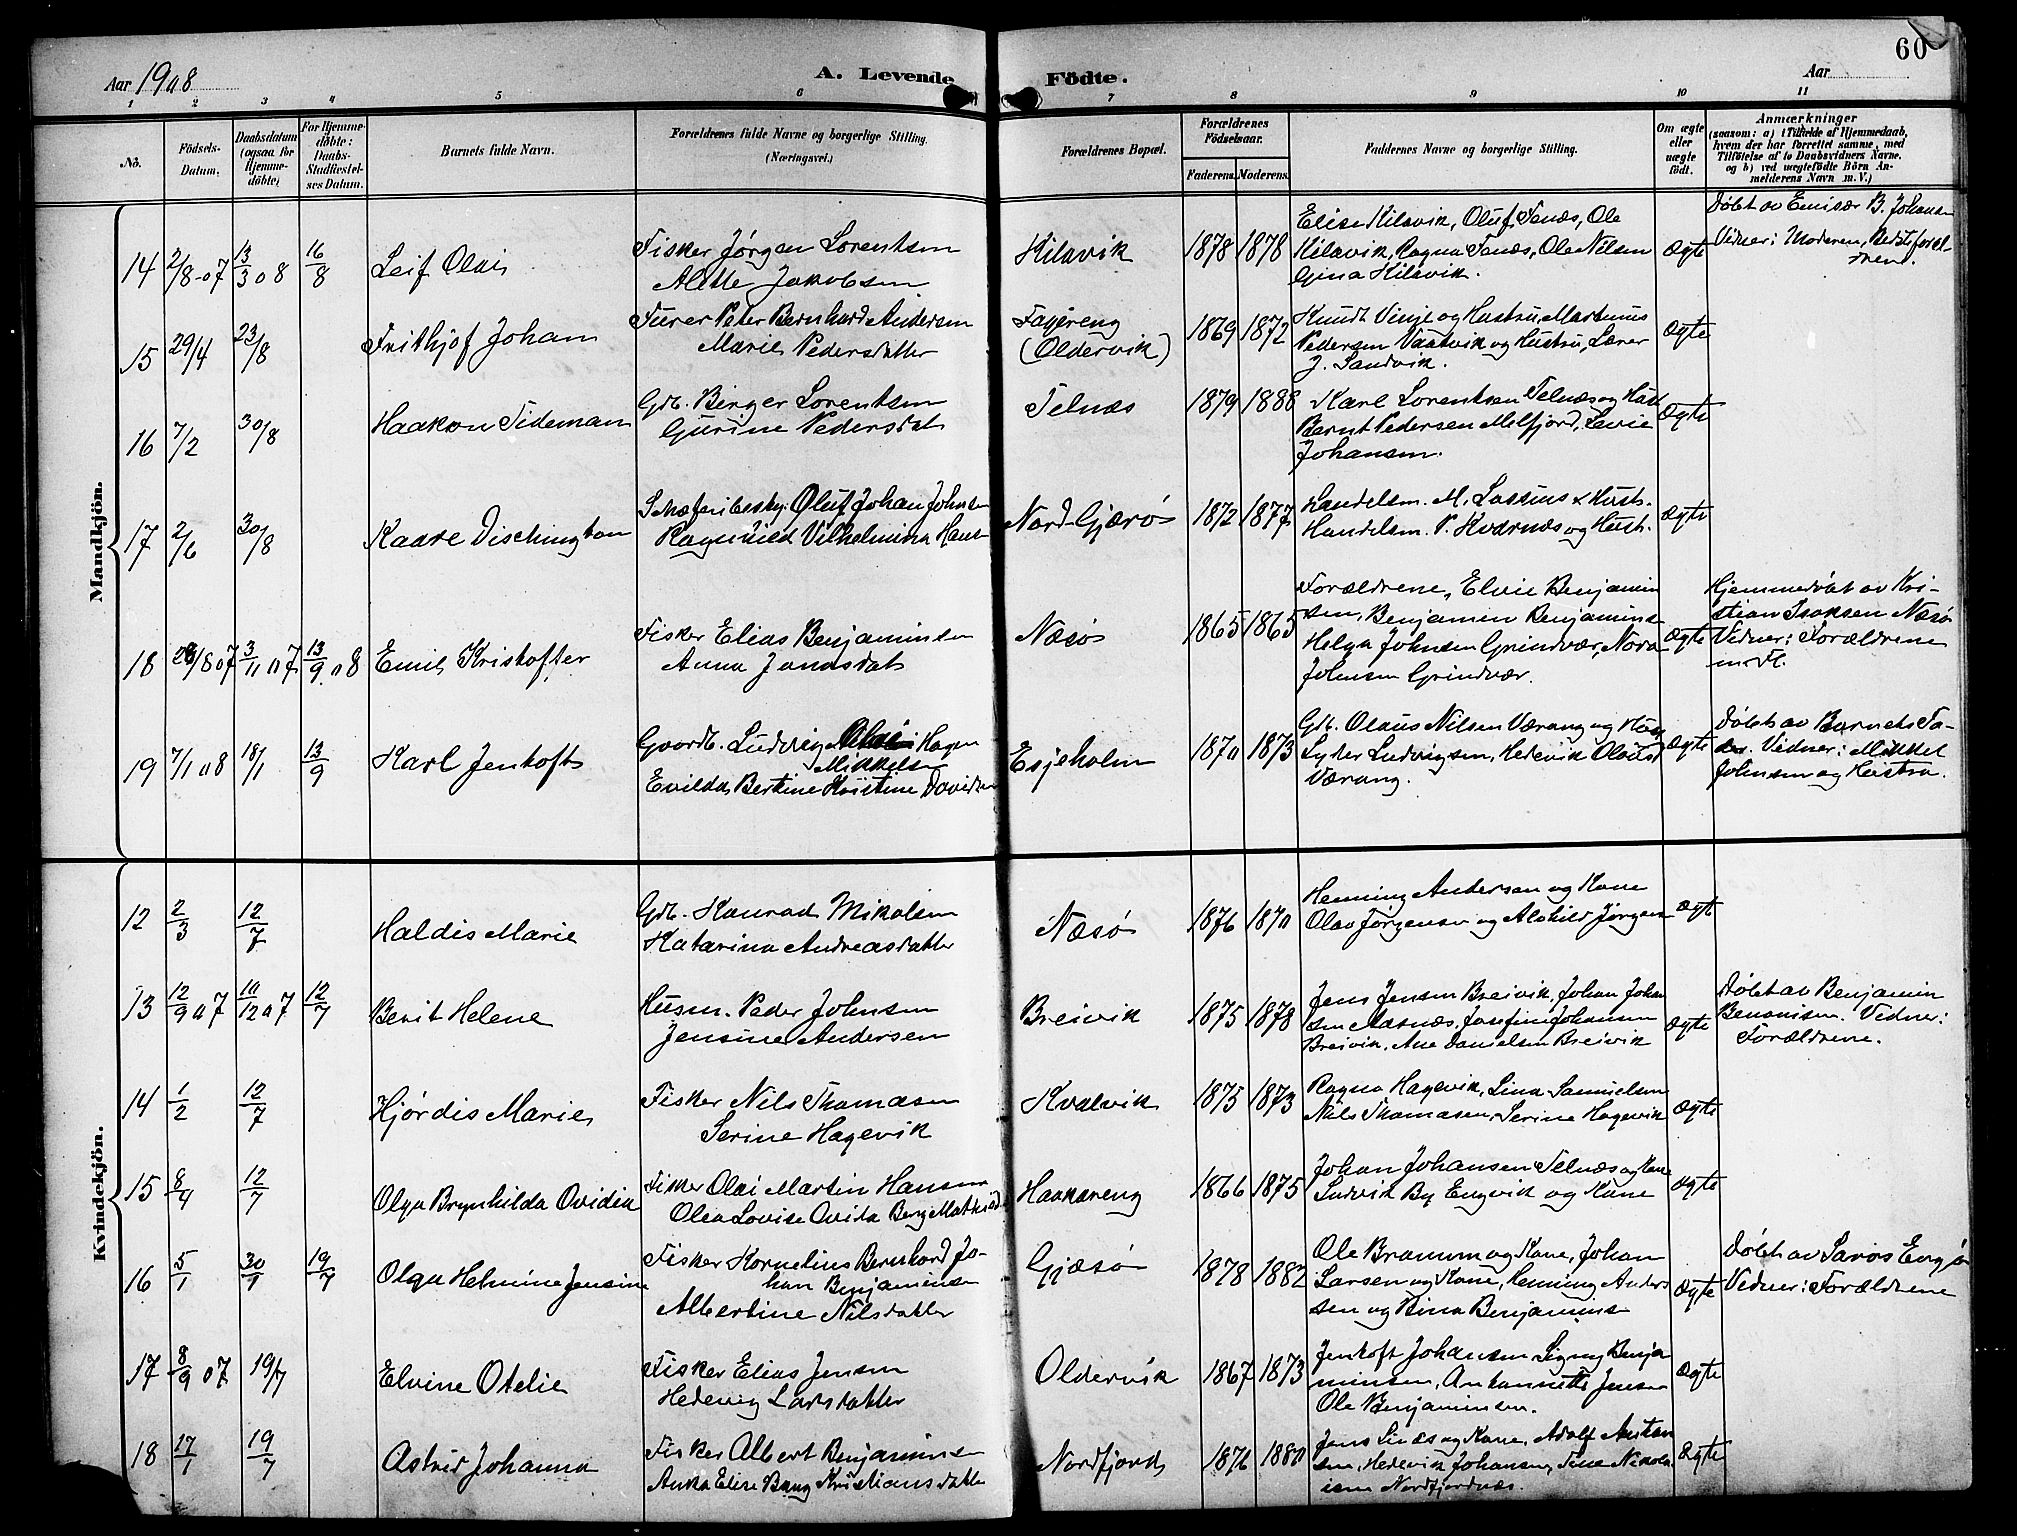 60
Aar 1908
A. Levende Födte.
Aar
1 2 3 4 5 6 7 8 9 10 11
No.
Födsels-Datum.
Daabsdatum (ogsaa for Hjemme-döbte)
For Hjemme-döbte: Daabs-Stadfæstel-ses Datum.
Barnets fulde Navn.
Forældrenes fulde Navne og borgerlige Stilling. (Næringsvei.)
Forældrenes Bopæl.
Forældrenes Födselsaar.
Faderens. Moderens.
Faddernes Navne og borgerlige Stilling.
Om ægte eller uægte födt.
Anmærkninger
(saasom: a) i Tilfælde af Hjemmedaab,
hvem der har forrettet samme, med
Tilföielse af to Daabsvidners Navne,
og b) ved uægtefödte Börn An-
melderens Navn m. V.)
Mandkjön.
14 2/8 07 13/3 08 16/8 Leif Olai
Fisker Jörgen Lorentsen
Alette Jakobsen
Kilavik 1878 1878
Elise Kilavik, Oluf Fanæs, Ole
Kilavik, Ragna Fanæs, Ole Nilsen
Gina Kilavik.
Ægte
Döbt av Emisær B. Johansen
Vidner: Moderen, Bedsteforæl-
drene.
15 29/4 23/8 Frithjof Johan
Furer Peter Bernhard Andersen
Marie Pedersdatter
Fagereng
(Oldervik)
1869 1872
Knudt Vinje og Hustru, Martinus
Pedersen Vaatvik og Hustru, Lærer
J. Sandvik.
Ægte
16 7/2 30/8 Haakon Tideman
Gdb. Birger Lorentsen
Gurine Pedersdat
Telnæs 1879 1888
Karl Lorentsen Telnæs og Hust
Bernt Pedersen Melfjord, Levie
Johansen.
Ægte
17 2/6 30/8 Kaare Dischington
Oluf Johan Johnsen
Ragnhild Vilhelmina Hans
Nord-Gjærö 1872 1877
Handelsm. M. Lassius & Hust.
Handelsm. P. Kværnæs og Hust.
Ægte
18 28/8 07 3/11 07 13/9 08 Emil Kristoffer
Fisker Elias Benjaminsen
Anna Jonasdat
Næsö 1865 1865
Forældrene, Elvie Benjamin
sen, Benjamin Benjamins
Helga Johnsen Grindvær, Nora
Johnsen Grindvær.
Ægte
Hjemmedöbt av Kri-
stian Isaksen Næsö
Vidner: Forældrene
m. fl.
19 7/1 08 18/1 13/9 Karl Jentoft
Gaardb. Ludvig Hagen
Mikkelsen
Evilda Bertine Kristine Davidsen
Esjeholm 1870 1873
Gdb. Olaus Nilsen Værang og Hus
Lyder Ludvigsen, Hedevik Olausd
Værang.
Ægte
Döbt av Barnets Fa-
der. Vidner: Mikkel
Johnsen og Hustru.
Kvindekjön.
12 2/3 12/7 Haldis Marie
Gdb. Konrad Mikalsen
Katarina Andreasdatter
Næsö 1876 1870
Henning Andersen og Kone
Olav Jörgensen og Alvhild Jörgens
Ægt
13 12/9 07 10/12 07 12/7 Berit Helene
Husm. Peder Johnsen
Jensine Andersen
Breivik 1875 1878
Jens Jensen Breivik, Johan Johan
sen Aasnæs, Josefine Johansen
Breivik, Ane Danielsen Breivik
Ægte
Döbt av Benjamin
Benonisen. Vidner:
Forældrene.
14 1/2 12/7 Hjördis Marie
Fisker Nils Thomasen
Serine Hagevik
Kvalvik 1875 1873
Ragna Hagevik, Lina Samuelsen
Nils Thomasen, Serine Hagevik
Ægte
15 8/4 12/7 Olga Brynhilda Ovidia
Fisker Olai Martin Hansen
Olea Lovise Ovida Berg
Haakareng 1866 1875
Johan Johansen Telnæs og Kone
Ludvik By Engvik og Kone
Ægte
16 5/1 30/1 19/7 Olga Helmine Jensine
Fisker Kornelius Bernhard Jo-
han Benjaminsen
Albertine Nilsdatter
Gjæsö 1878 1882
Ole Bramm og Kone, Johan
Larsen og Kone, Henning Anders
sen og Bina Benjamins
Ægte
Döbt av Engjö
Vidner: Forældrene
17 8/9 07 19/7 Elvine Otelie
Fisker Elias Jensen
Hedevig Larsdatter
Oldervik 1867 1873
Jentoft Johansen, Signy Benja
minsen, Antonette Jensen
Ole Benjaminsen.
Ægte
18 17/1 19/7 Astrid Johanna
Fisker Albert Benjaminsen
Anna Elise Bang Kristiansdatter
Nordfjord 1876 1880
Jens og Kone, Adolf
sen, Hedevik Johansen, Tina Nikola
isen Nordfjordnæs.
Ægte